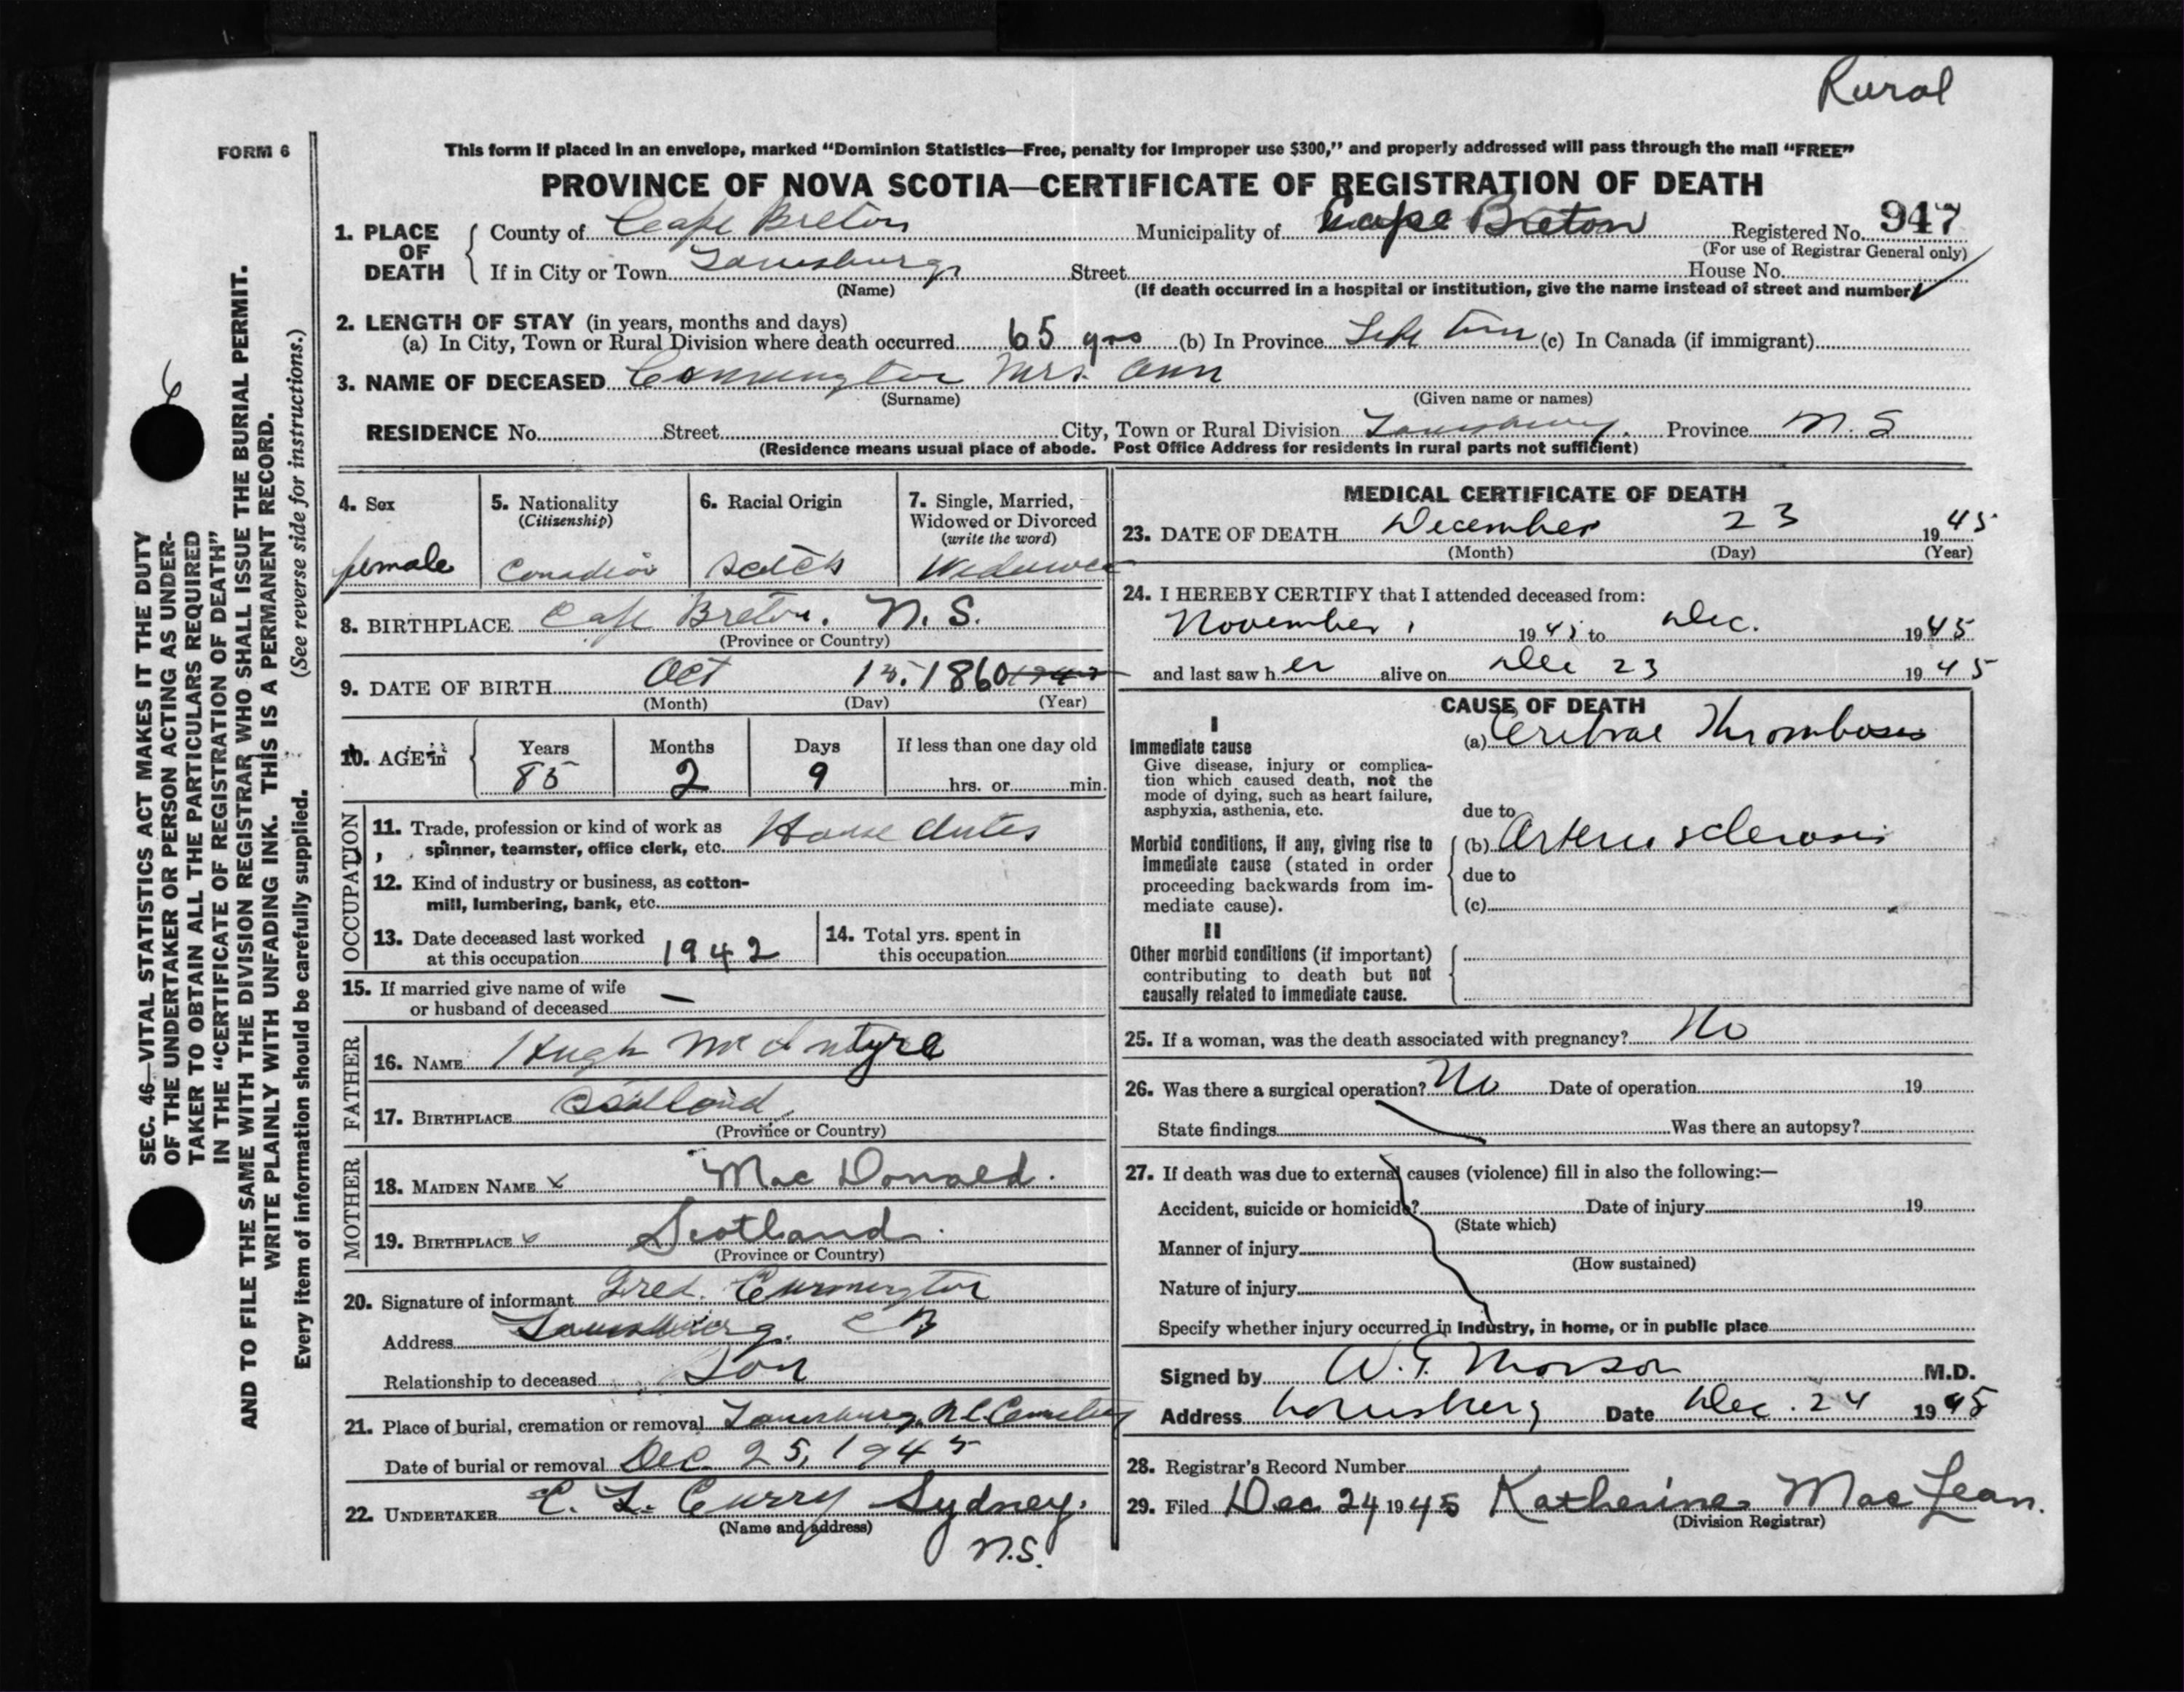 Rural
FORM 6
This form if placed in an envelope, marked “Dominion Statistics—Free, penalty for improper use $300,” and properly addressed will pass through the mail “FREE”
PROVINCE OF NOVA SCOTIA—CERTIFICATE OF REGISTRATION OF DEATH
1. PLACE OF DEATH County of Cape Breton Municipality of Cape Breton Registered No. 947
(For use of Registrar General only)
If in City or Town Louisburg Street House No.
(Name) (If death occurred in a hospital or institution, give the name instead of street and number)
2. LENGTH OF STAY (in years, months and days)
(a) In City, Town or Rural Division where death occurred 65 yrs (b) In Province Life time (c) In Canada (if immigrant)
3. NAME OF DECEASED Mrs. Ann
(Surname) (Given name or names)
RESIDENCE No. Street City, Town or Rural Division Louisburg. Province N. S
(Residence means usual place of abode. Post Office Address for residents in rural parts not sufficient)
4. Sex
female
5. Nationality
(Citizenship)
Canadian
6. Racial Origin
Scotch
7. Single, Married,
Widowed or Divorced
(write the word)
Widowed
8. BIRTHPLACE Cape Breton. N. S.
(Province or Country)
9. DATE OF BIRTH Oct 1860
(Month) (Day) (Year)
10. AGE in Years 85 Months 2 Days 9 If less than one day old
hrs. or min.
OCCUPATION
11. Trade, profession or kind of work as
spinner, teamster, office clerk, etc. House duties
12. Kind of industry or business, as cotton-
mill, lumbering, bank, etc.
13. Date deceased last worked
at this occupation 1942
14. Total yrs. spent in
this occupation
15. If married give name of wife
or husband of deceased —
FATHER
16. NAME Hugh McIntyre
17. BIRTHPLACE Scotland
(Province or Country)
MOTHER
18. MAIDEN NAME x Mac Donald.
19. BIRTHPLACE Scotland.
(Province or Country)
20. Signature of informant Fred.
Address Louisburg. C B
Relationship to deceased Son
21. Place of burial, cremation or removal Louisburg, R.C. Cemetery
Date of burial or removal Dec 25, 1945
22. UNDERTAKER C. L. Curry Sydney.
(Name and address)
N.S.
MEDICAL CERTIFICATE OF DEATH
23. DATE OF DEATH December 23 1945
(Month) (Day) (Year)
24. I HEREBY CERTIFY that I attended deceased from:
November 1945 to Dec. 1945
and last saw her alive on Dec 23 1945
CAUSE OF DEATH
I
Immediate cause
Give disease, injury or complica-
tion which caused death, not the
mode of dying, such as heart failure,
asphyxia, asthenia, etc.
(a) Cerebral Thrombosis
due to
Morbid conditions, if any, giving rise to
immediate cause (stated in order
proceeding backwards from im-
mediate cause).
(b) Arterio sclerosis
due to
(c)
II
Other morbid conditions (if important)
contributing to death but not
causally related to immediate cause.
25. If a woman, was the death associated with pregnancy? No
26. Was there a surgical operation? No Date of operation 19
State findings Was there an autopsy?
27. If death was due to external causes (violence) fill in also the following:—
Accident, suicide or homicide? Date of injury 19
(State which)
Manner of injury
(How sustained)
Nature of injury
Specify whether injury occurred in industry, in home, or in public place
Signed by M.D.
Address Louisburg Date Dec. 24 1945
28. Registrar's Record Number
29. Filed Dec 24 1945 Katherine MacLean.
(Division Registrar)
6
SEC. 46—VITAL STATISTICS ACT MAKES IT THE DUTY
OF THE UNDERTAKER OR PERSON ACTING AS UNDER-
TAKER TO OBTAIN ALL THE PARTICULARS REQUIRED
IN THE “CERTIFICATE OF REGISTRATION OF DEATH”
AND TO FILE THE SAME WITH THE DIVISION REGISTRAR WHO SHALL ISSUE THE BURIAL PERMIT.
WRITE PLAINLY WITH UNFADING INK. THIS IS A PERMANENT RECORD.
Every item of information should be carefully supplied. (See reverse side for instructions.)